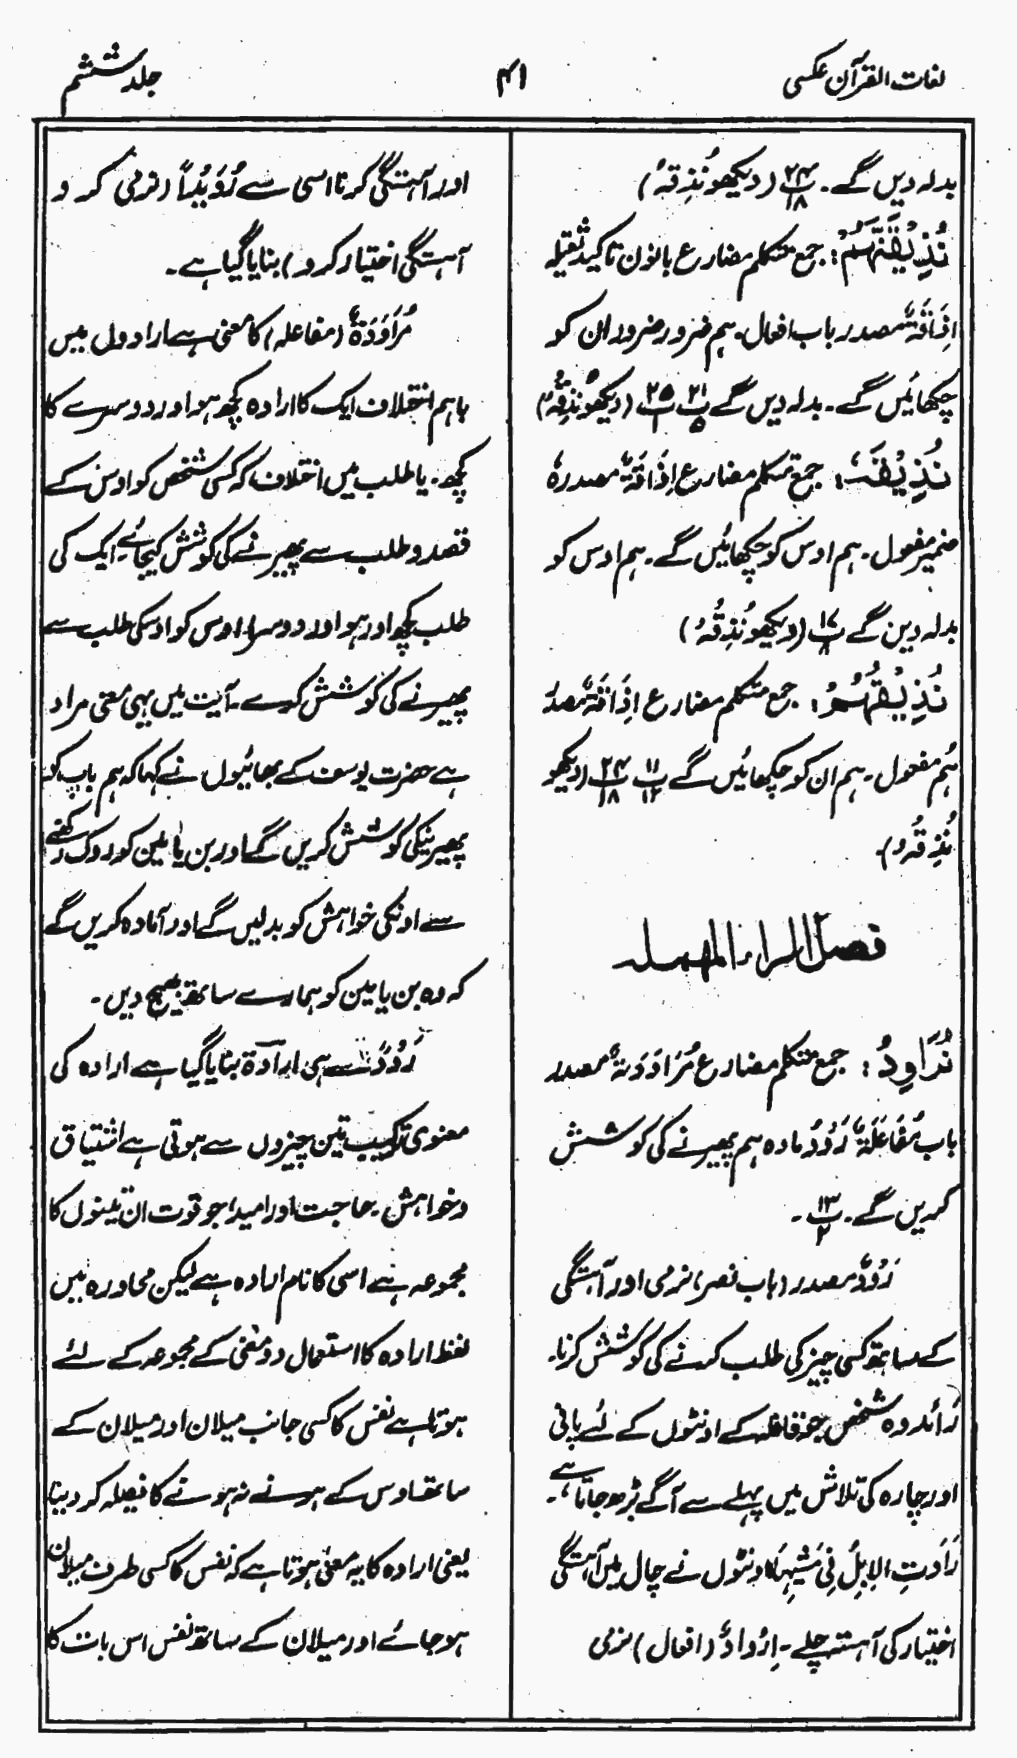 لغات القرآن عکسی
۴۱
جلد ششم
بدلہ دیں گے۔ پ ۲۴/۱۸ (دیکھو نُذِقْہُ)
نُذِیْقَنَّھُمْ: جمع متکلم مضارع بانون تاکید ثقیلہ
اِذَاقَۃٌ مصدر باب افعال۔ ہم ضرور ضرور ان کو
چکھائیں گے۔ بدلہ دیں گے پ ۲۱/۵ پ ۲۵/۱ (دیکھو نُذِقْہُ)
نُذِیْقُہٗ: جمع متکلم مضارع اِذَاقَۃٌ مصدر ہٗ
ضمیر مفعول۔ ہم اوس کو چکھائیں گے۔ ہم اوس کو
بدلہ دیں گے پ ۱۷/۸ (دیکھو نُذِقْہُ)
نُذِیْقُہُمْ: جمع متکلم مضارع اِذَاقَۃٌ مصدر
ہُم مفعول۔ ہم ان کو چکھائیں گے پ ۱۱/۱۲ پ ۲۴/۱۸ (دیکھو
نُذِقْہُ)۔
فصل الراء المھملہ
نُرَاوِدُ: جمع متکلم مضارع مُرَاوَدَۃٌ مصدر
باب مُفَاعَلَۃٌ رَوْدٌ مادہ ہم پھیرنے کی کوشش
کریں گے۔ پ ۱۳/۲۔
رَوْدٌ مصدر (باب نصر) نرمی اور آہستگی
کے ساتھ کسی چیز کی طلب کرنے کی کوشش کرنا۔
رَائد وہ شخص جو قافلہ کے اونٹوں کے لئے پانی
اور چارہ کی تلاش میں پہلے سے آگے بڑھ جاتا ہے۔
رَادَتِ الاِبِلُ فِیْ مَشْیِہَا اونٹوں نے چال میں آہستگی
اختیار کی آہستہ چلے۔ اِرْوَادٌ (افعال) نرمی
اور آہستگی کرنا اسی سے رُوَیْداً (نرمی کرو
آہستگی اختیار کرو) بنایا گیا ہے۔
مُرَاوَدَۃٌ (مفاعلہ) کا معنی ہے ارادوں میں
باہم اختلاف ایک کا ارادہ کچھ ہو اور دوسرے کا
کچھ۔ یا طلب میں اختلاف کہ کسی شخص کو اوس کے
قصد و طلب سے پھیرنے کی کوشش کیجائے۔ ایک کی
طلب کچھ اور ہو اور دوسرا اوس کو اوسکی طلب سے
پھیرنے کی کوشش کرے۔ آیت میں یہی معنی مراد
ہے حضرت یوسف کے بھائیوں نے کہا کہ ہم باپ کو
پھیرنیکی کوشش کریں گے اور بن یامین کو روک رکھنے
سے اونکی خواہش کو بدلیں گے اور آمادہ کریں گے
کہ وہ بن یامین کو ہمارے ساتھ بھیج دیں۔
رَوْدٌ سے ہی ارادۃ بنایا گیا ہے ارادہ کی
معنوی ترکیب تین چیزوں سے ہوتی ہے اشتیاق
وخواہش۔ حاجت اور امید جو قوت ان تینوں کا
مجموعہ ہے اسی کا نام ارادہ ہے لیکن محاورہ میں
لفظ ارادہ کا استعمال دو معنی کے مجموعہ کے لئے
ہوتا ہے نفس کا کسی جانب میلان اور میلان کے
ساتھ اوس کے ہونے نہ ہونے کا فیصلہ کر دینا
یعنی ارادہ کا یہ معنی ہوتا ہے کہ نفس کا کسی طرف میلان
ہو جائے اور میلان کے ساتھ نفس اس بات کا